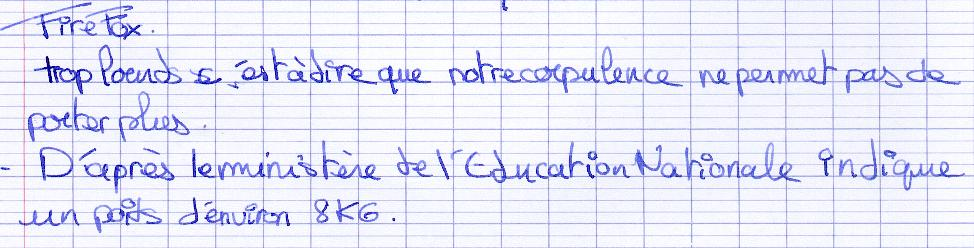 Firefox.
trop lourds c'est à dire que notre corpulence ne permet pas de
porter plus.
- D'après le ministère de l'Education Nationale indique
un poids d'environ 8KG.